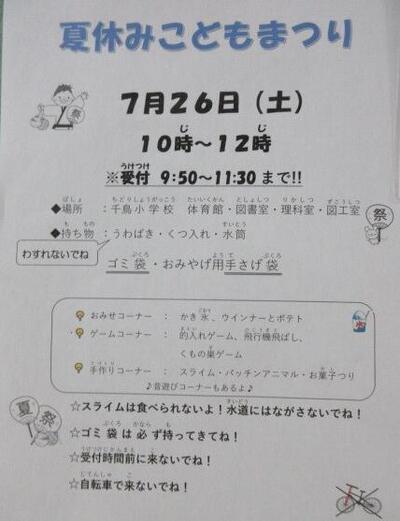 夏休みこどもまつり
7月26日（土）
10時～12時
※受付 9:50～11:30 まで!!
◆場所 ：千鳥小学校 体育館・図書室・理科室・図工室
◆持ち物 ：うわばき・くつ入れ・水筒
わすれないでね
ゴミ袋・おみやげ用手さげ袋
おみせコーナー ： かき氷、ウインナーとポテト
ゲームコーナー ： 的入れゲーム、飛行機飛ばし、
くもの巣ゲーム
手作りコーナー ： スライム・パッチンアニマル・お菓子つり
♪昔遊びコーナーもあるよ♪
夏祭
☆スライムは食べられないよ！水道にはながさないでね！
☆ゴミ袋は必ず持ってきてね！
☆受付時間前に来ないでね！
☆自転車で来ないでね！